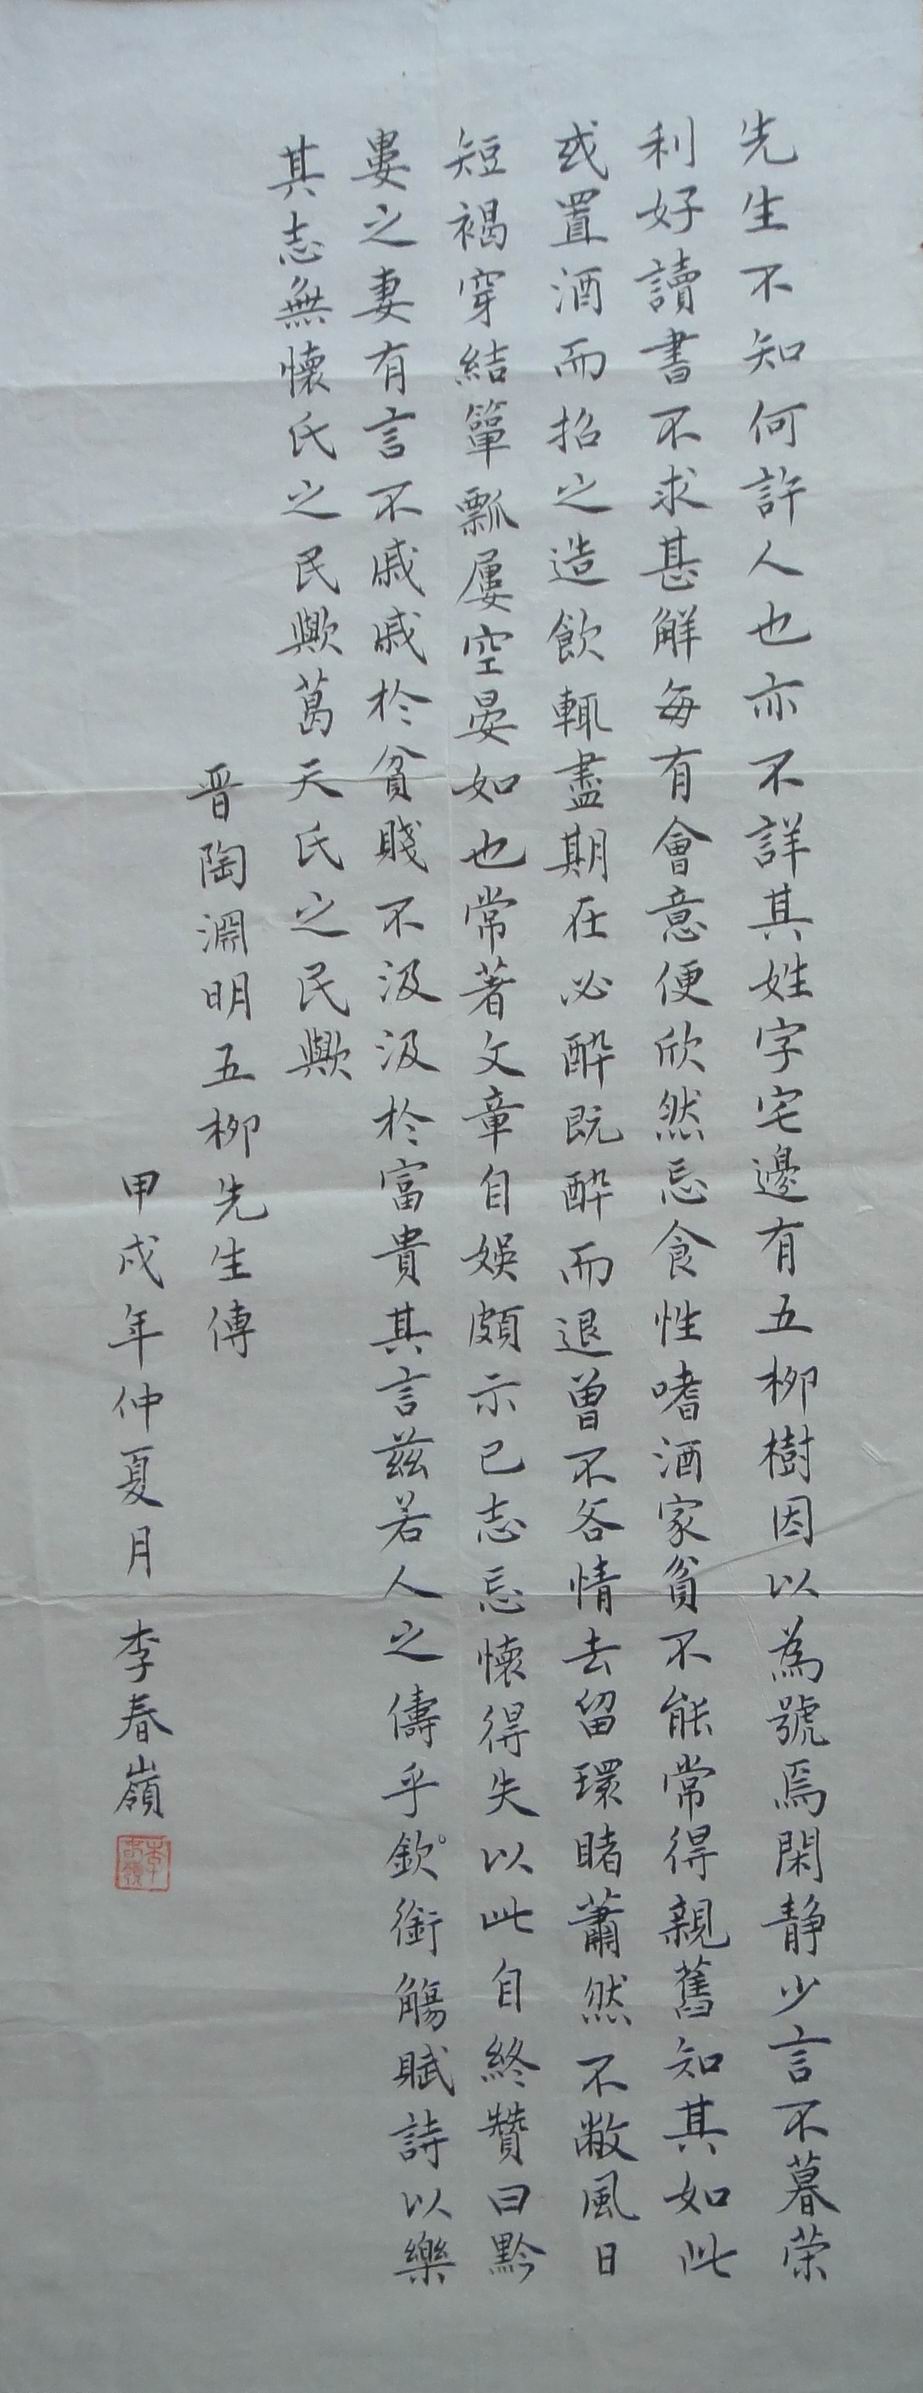 先生不知何許人也亦不詳其姓字宅邊有五柳樹因以為號焉閑靜少言不暮荣
利好讀書不求甚解每有會意便欣然忘食性嗜酒家貧不能常得親舊知其如此
或置酒而招之造飲輒盡期在必醉既醉而退曾不吝情去留環睹蕭然不敝風日
短褐穿結簞瓢屢空晏如也常著文章自娛頗示己志忘懷得失以此自終贊曰黔
婁之妻有言不戚戚於貧賤不汲汲於富貴其言茲若人之儔乎欽銜觴賦詩以樂
其志無懷氏之民歟葛天氏之民歟
晋陶淵明五柳先生傳
甲戌年仲夏月 李春嶺